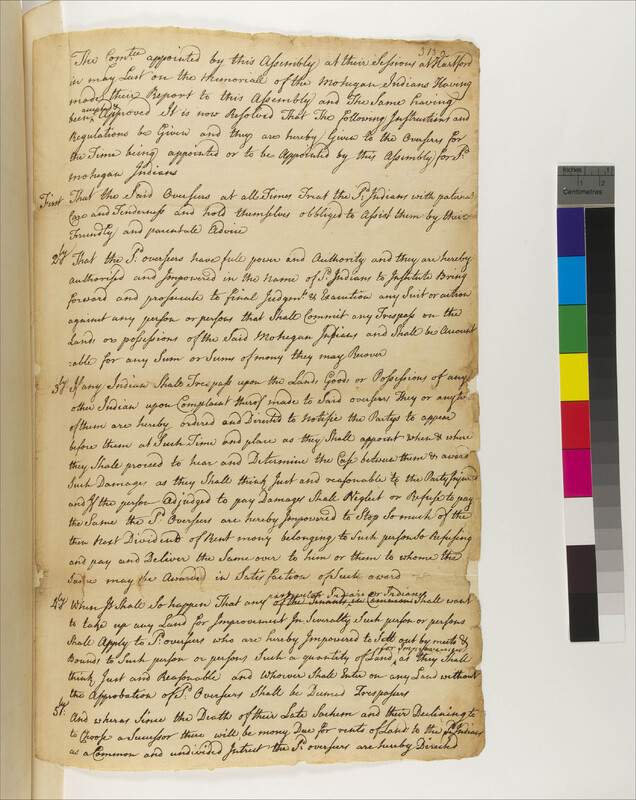 313
The Com.tee appointed by this Assembly at their Sessions at Hartford
in may Last on the Memoriall of the Mohegan Indians Having
made their Report to this Assembly and The Same having
been accepted & Approved It is now Resolved That The following Instructions and
Regulations be Given and they are hereby Given to the Overseers for
the Time being appointed or to be Appointed by this Assembly for Sd.
mohegan Indians
First That the Said Overseers at all Times Treat the Sd. Indians with paternal
Care and Tenderness and hold themselves obbliged to Assist them by their
Friendly and parentale Advice
2ly That the Sd. overseers have full power and Authority and they are hereby
authorised and Impowered in the name of Sd. Indians to Institute Bring
forward and prosecute to final Judgmt. & Execution any Suit or action
against any person or persons that Shall Commit any Trespass on the
Lands or possessions of the Said Mohegan Indians and Shall be Account
-able for any Sum or Sums of mony they may Recover
3ly If any Indian Shall Trespass upon the Lands Goods or Possessions of any
other Indian upon Complaint therof made to Said overseers They or any
of them are hereby ordered and Directed to Notifie the Partys to appear
before them at Such Time and place as they Shall appoint when & where
they Shall proceed to hear and Determine the Case between them & award
Such Damages as they Shall think Just and reasonable to the Party Injured
and If the person Adjudged to pay Damages Shall Neglect or Refuse to pay
the Same the Sd. Overseers are hereby Impowered to Stop So much of the
then Next Dividend of Rent mony belonging to Such person So Refusing
and pay and Deliver the Same over to him or them to whome the
Same may be Awarded in Satesfaction of Such award
4ly When It Shall So happen That any particular Indian or Indians of the Tennants in Common Shall want
to take up any Land for Improvement In Severalty Such person or persons
Shall Apply to Sd. overseers who are hereby Impowered to Sett out by meets &
Bounds to Such person or persons Such a quantity of Land for Improvement as they Shall
think Just and Reasonable and Whoever Shall Enter on any Land without
the Approbation of Sd. Overseers Shall be Deemed Trespassers
5ly. And wheras Since the Death of their Late Sachem and their Declining to
to Choose a Successor there will be mony Due for rents of Land to the Sd. Indians
as a Common and undivided Intrest the Sd. overseers are hereby Directed
Inches
1
Centimetres
1 2